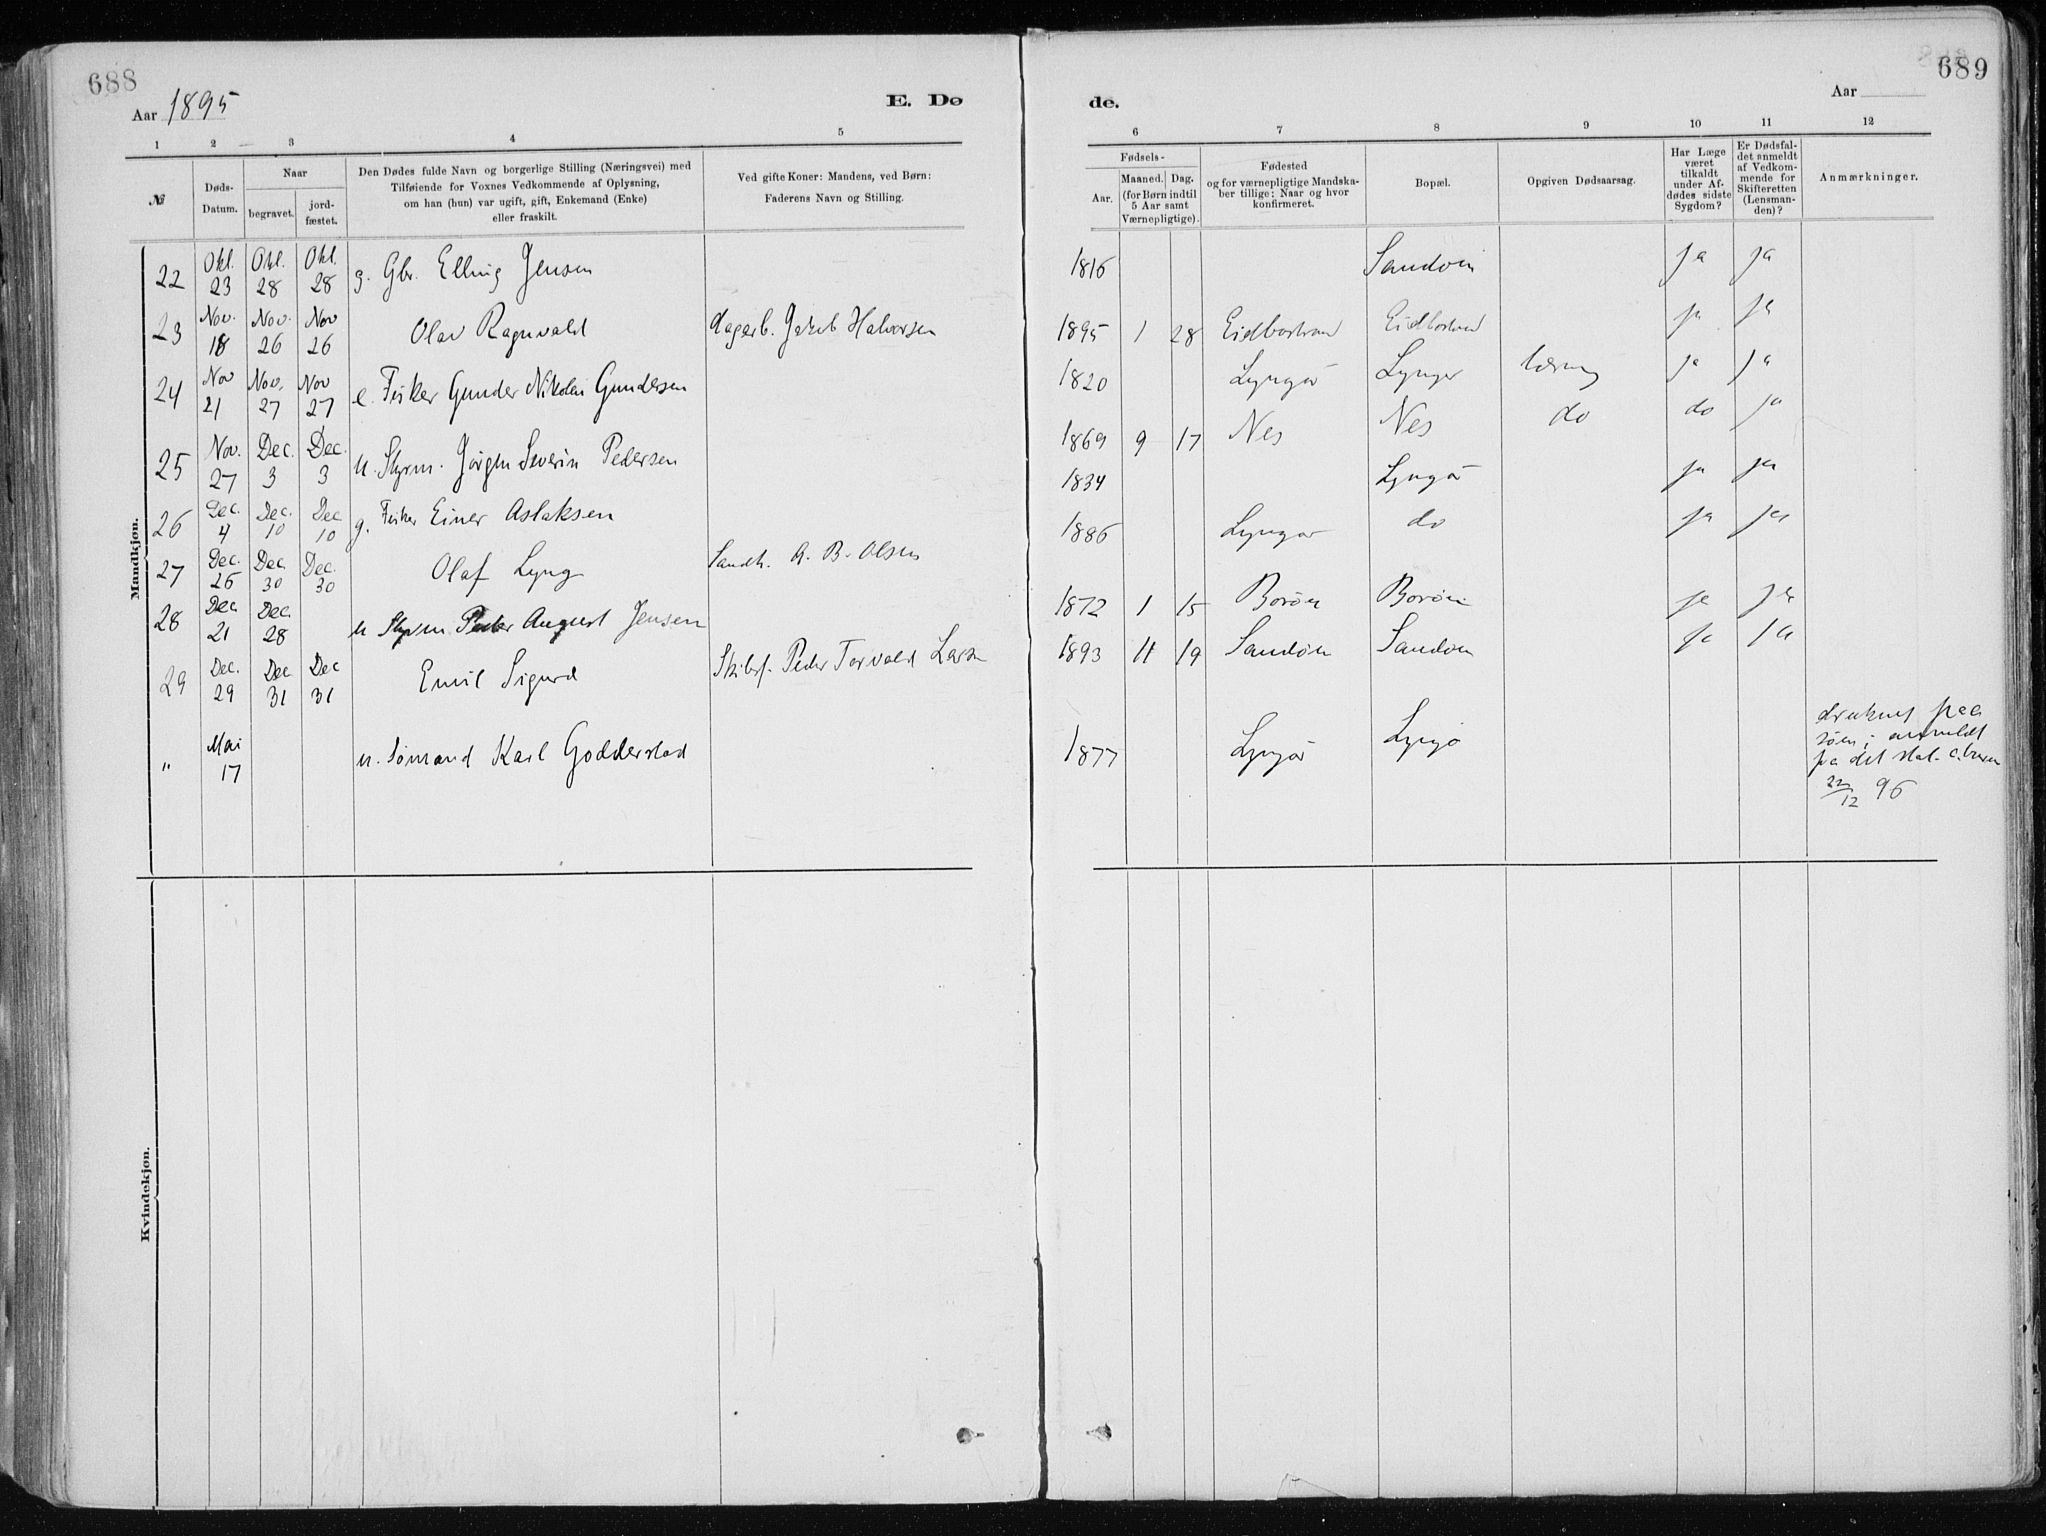 688
Aar 1895
E. Dø
1 2 3 4 5
№
Døds-
Datum.
Naar
begravet.
jord-
fæstet.
Den Dødes fulde Navn og borgerlige Stilling (Næringsvei) med
Tilføiende for Voxnes Vedkommende af Oplysning,
om han (hun) var ugift, gift, Enkemand (Enke)
eller fraskilt.
Ved gifte Koner: Mandens, ved Børn:
Faderens Navn og Stilling.
Mandkjøn.
22 Okt. 23 Okt. 28 Okt. 28 g. Gbr. Elling Jensen
23 Nov. 18 Nov. 26 Nov 26 Olav Ragnvald Dagarb. Jakob Halvorsen
24 Nov 21 Nov. 27 Nov 27 e. Fisker Gunder Nikolai Gundersen
25 Nov. 27 Dec. 3 Dec. 3 u. Styrm. Jørgen Severin Pedersen
26 Dec. 4 Dec. 10 Dec 10 g. Fisker Einer Aslaksen
27 Dec. 26 Dec. 30 Dec. 30 Olaf Lyng Sandh. A. B. Olsen
28 Dec 21 Dec 28 u Styrm Peder August Jensen
29 Dec. 29 Dec 31 Dec 31 Emil Sigurd Skibsf. Peder Torvald Larsen
" Mai 17 u. Sømand Karl Godderstad
Kvindekjøn.
689
Aar
de.
6 7 8 9 10 11 12
Fødsels-
Aar.
Maaned. Dag.
(for Børn indtil
5 Aar samt
Værnepligtige).
Fødested
og for værnepligtige Mandska-
ber tillige: Naar og hvor
konfirmeret.
Bopæl.
Opgiven Dødsaarsag.
Har Læge
været
tilkaldt
under Af-
dødes sidste
Sygdom?
Er Dødsfal-
det anmeldt
af Vedkom-
mende for
Skifteretten
(Lensman-
den)?
Anmærkninger.
1816 Sandøen ja ja
1895 1 28 Eidbostrand Eidbostrand ja ja
1820 Lyngør Lyngør tæring ja ja
1869 9 17 Nes Nes do do ja
1834 Lyngør ja ja
1886 Lyngør do ja ja
1872 1 15 Borøen Borøen ja ja
1893 11 19 Sandøen Sandøen ja ja
1877 Lyngør Lyngø
druknet paa
søen; anmeldt
pa det stat.
22/12 96